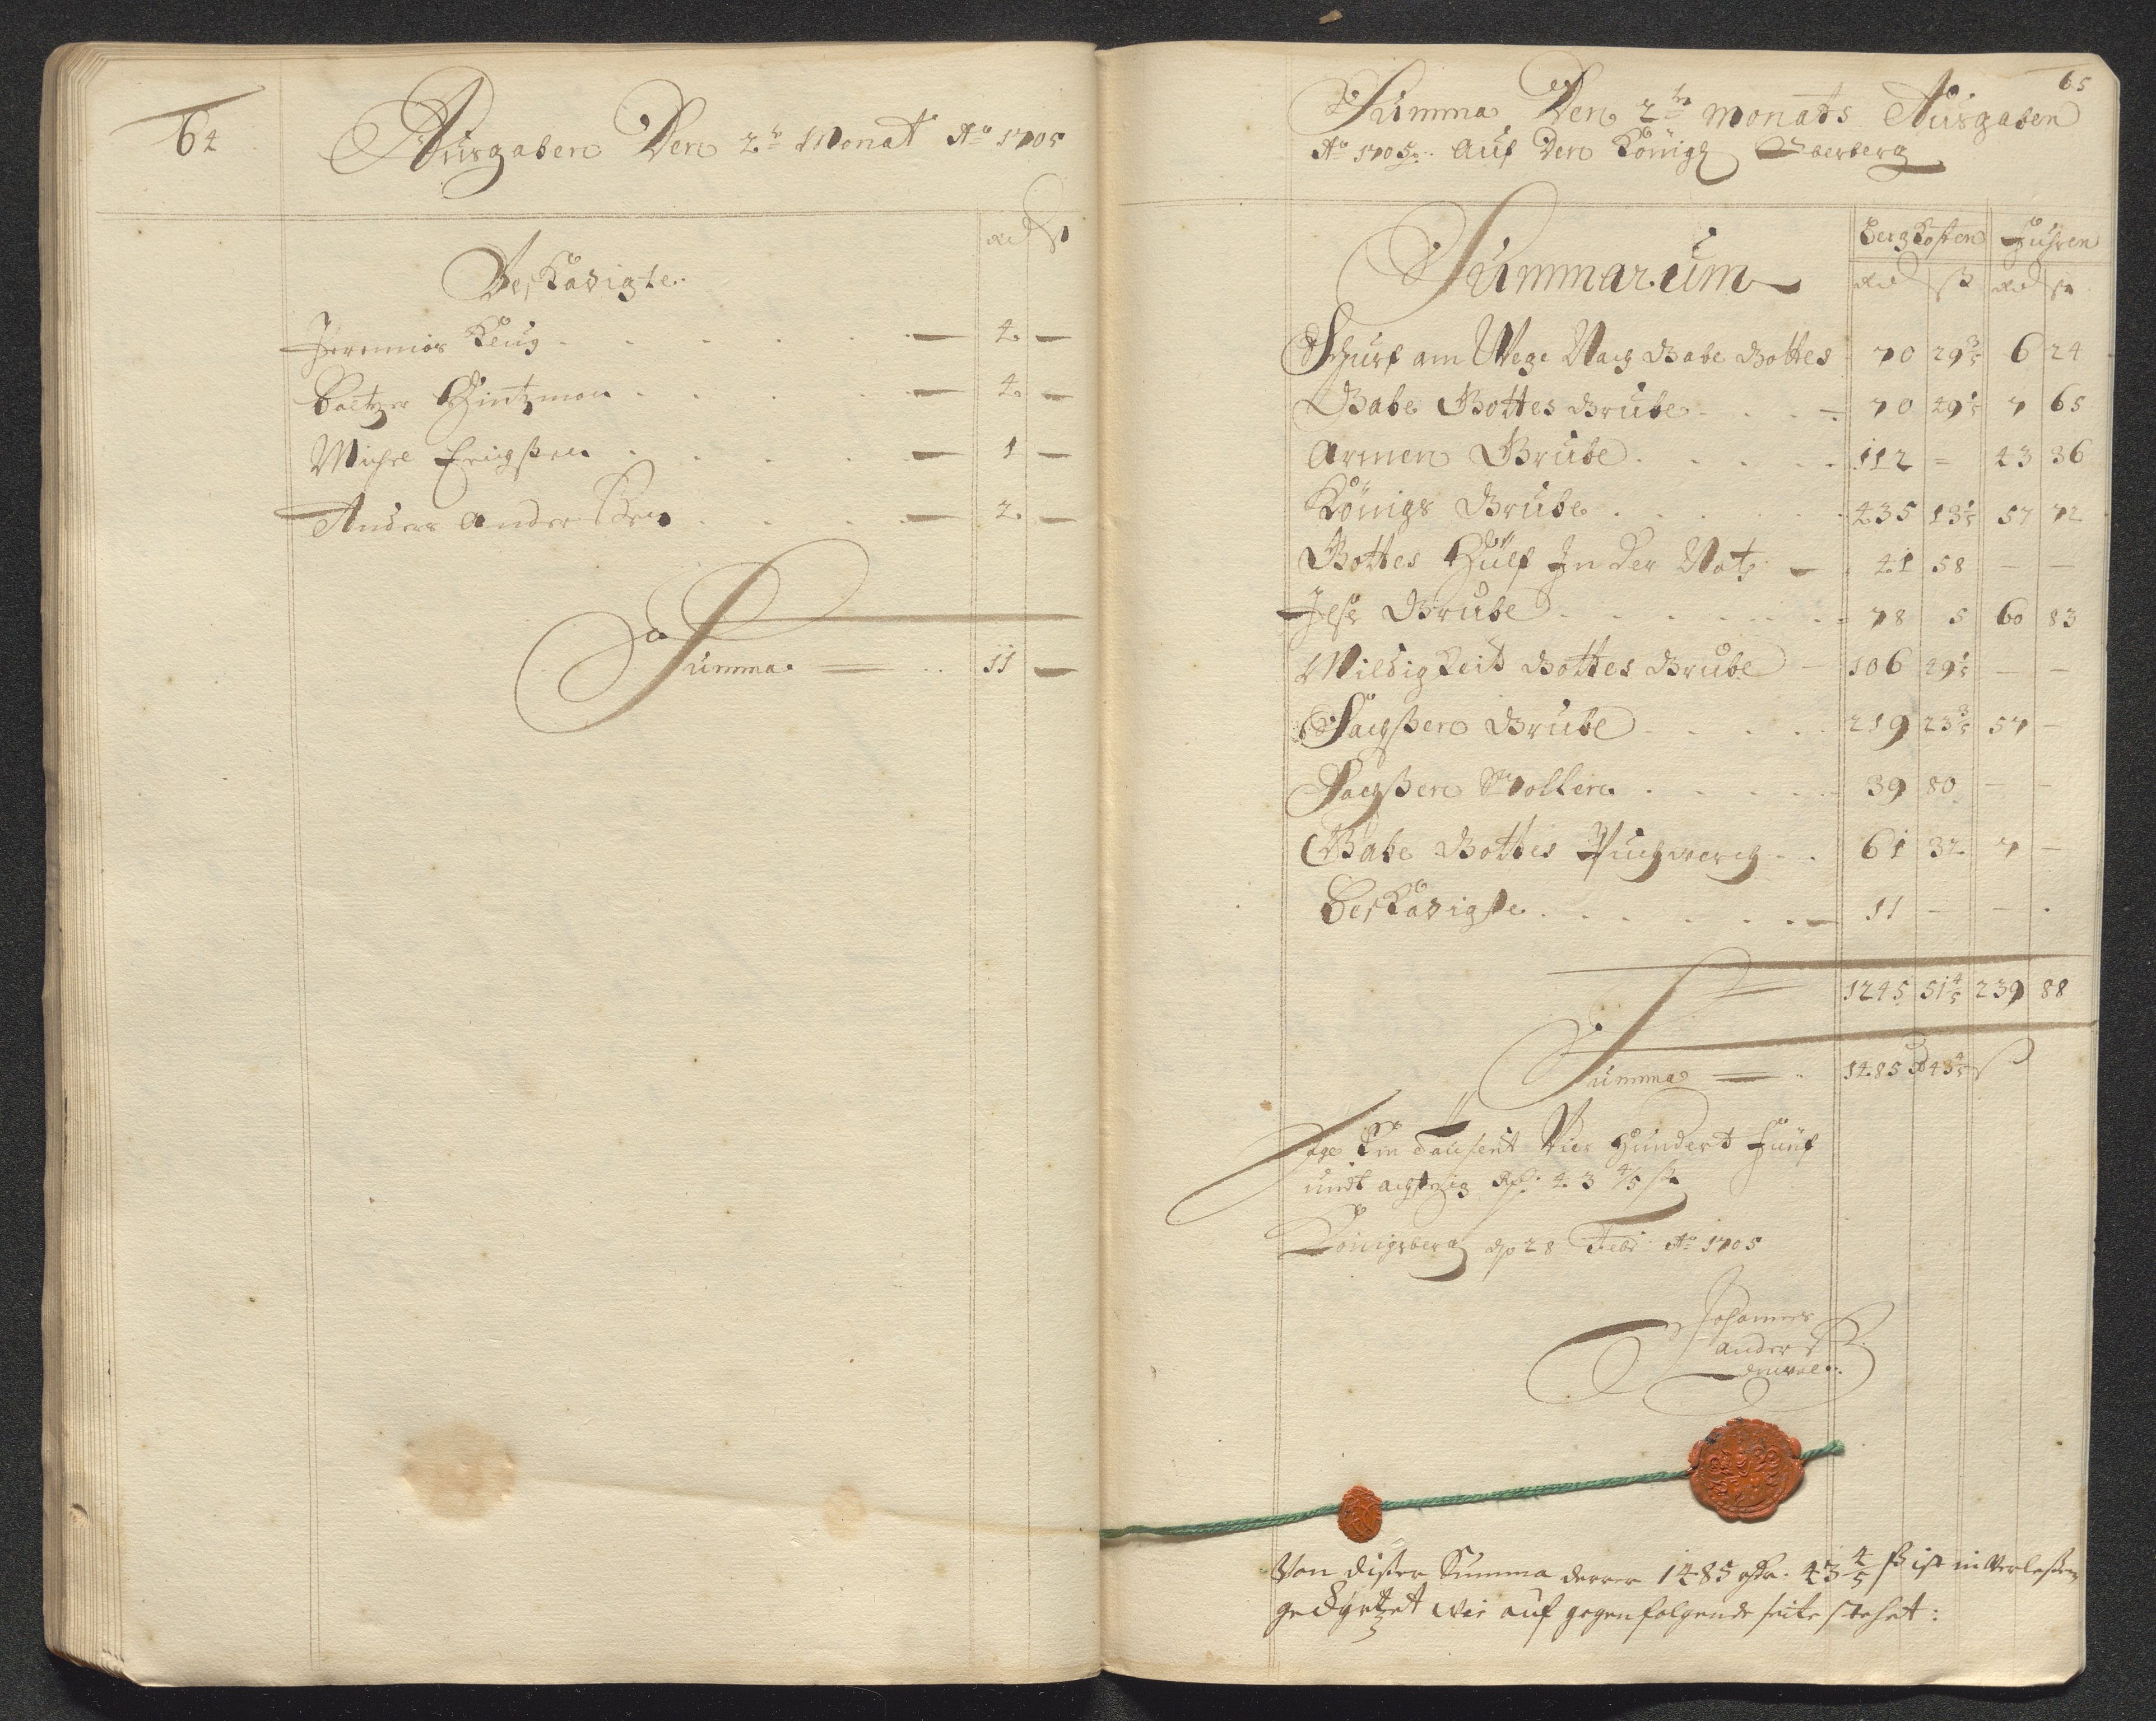 64
Ausgaben Den 2t Monat Ao 1705
Rd ß
Beskädigte
Jeremias Keug 4 —
Baltzer Hintzman 4 —
Michel Erichßen 1 —
Anders Anderßen 2 —
Summa 11 —
65
Summa Den 2tn Monats Ausgaben
Ao 1705 Auf Den Königs Oberberg
Summarum
Bergkosten Fuhren
Rd ß Rd ß
Schurf am Wege Nach Gabe Gottes 70 29 3/5 6 24
Gabe Gottes Grube 70 49 1/5 7 65
Armen Grube 112 = 43 36
Königs Grube 435 13 1/5 57 72
Gottes Hülf In der Noth 41 58 — —
Jul Grube 78 5 60 83
Mildigkeit Gottes Grube 106 29 1/5 — —
Sachßen Grube 219 23 3/5 57 —
Sachßen Stollen 39 80 — —
Gabe Gottes Puchwerch 61 32 7 —
Beskädigte 11 — —
1245 51 4/5 239 88
Summa 1485 Rd 43 4/5 ß
Sage Ein Tausent Vier Hundert Fünf
undt achtzig Rdr 43 4/5 ß
Königsberg dn 28 Febr Ao 1705
Johannes
Anders
Von dißer Summa derer 1485 Rdr. 43 4/5 ß ist in Verlesen
gekürtzet wie auf gegenfolgende seite stehet: